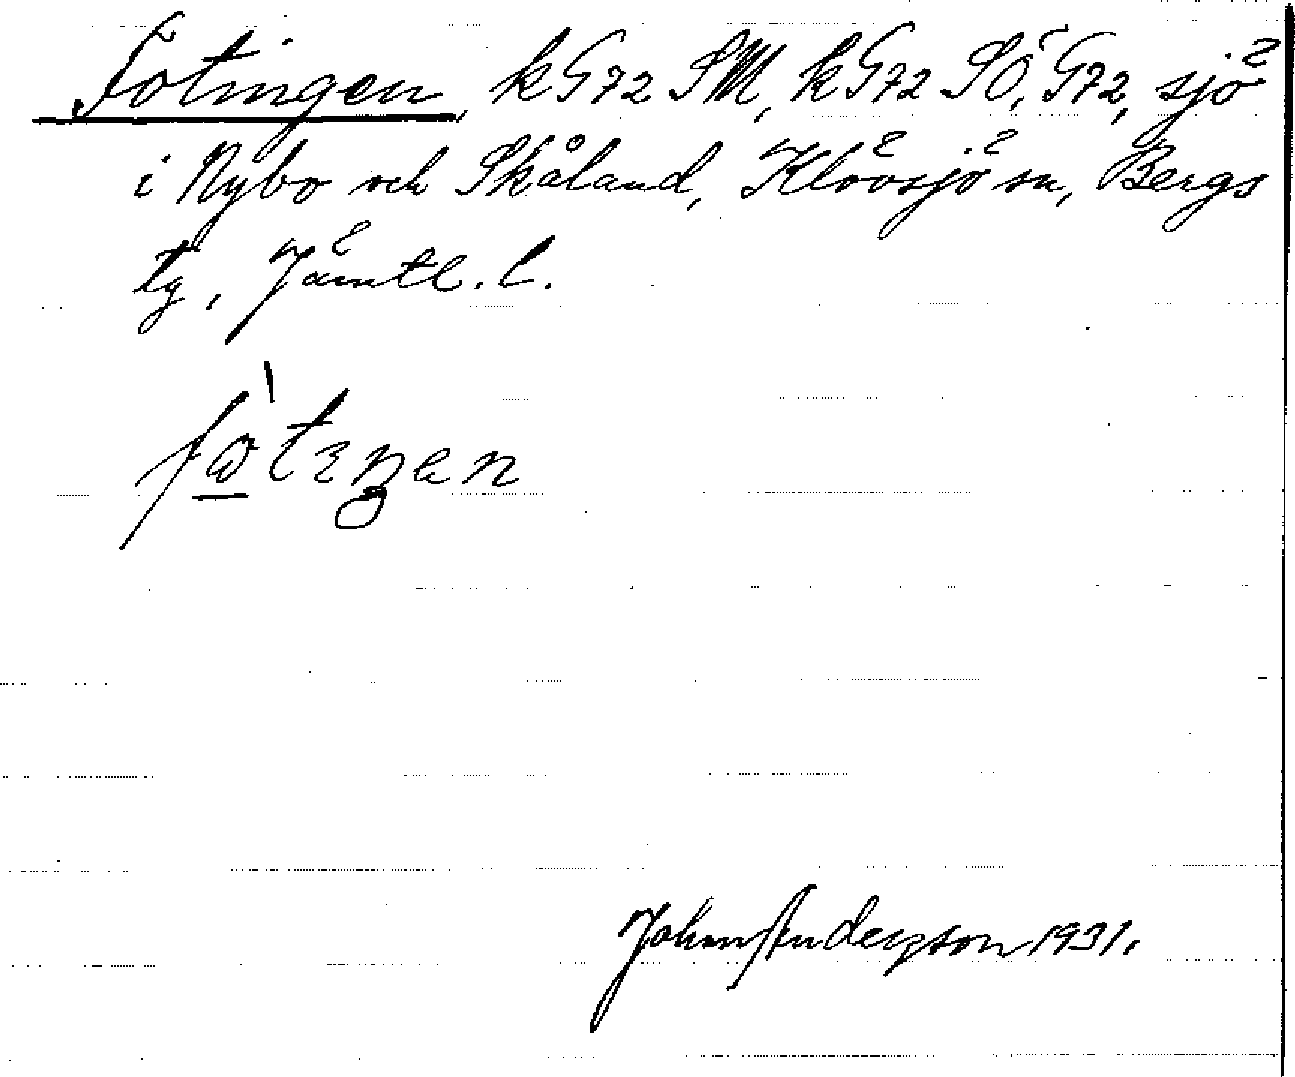 Fotingen, kG72 SM, kG72 SÖ, G72, sjö
i Nybo och Skåland, Klövsjö sn, Bergs
tg, Jämtl. l.
John Andersson 1931.